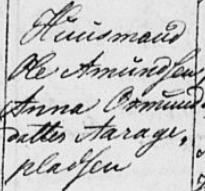 Huusmand
Ole Amundsen,
Anna Osmund
datter Aarage,
pladsen